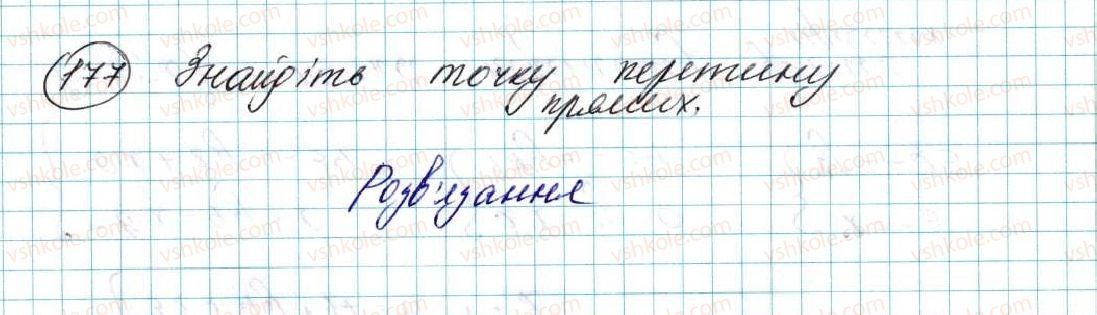 177 Знайдіть точку перетину
прямих.
Розв'язання
vshkole.com